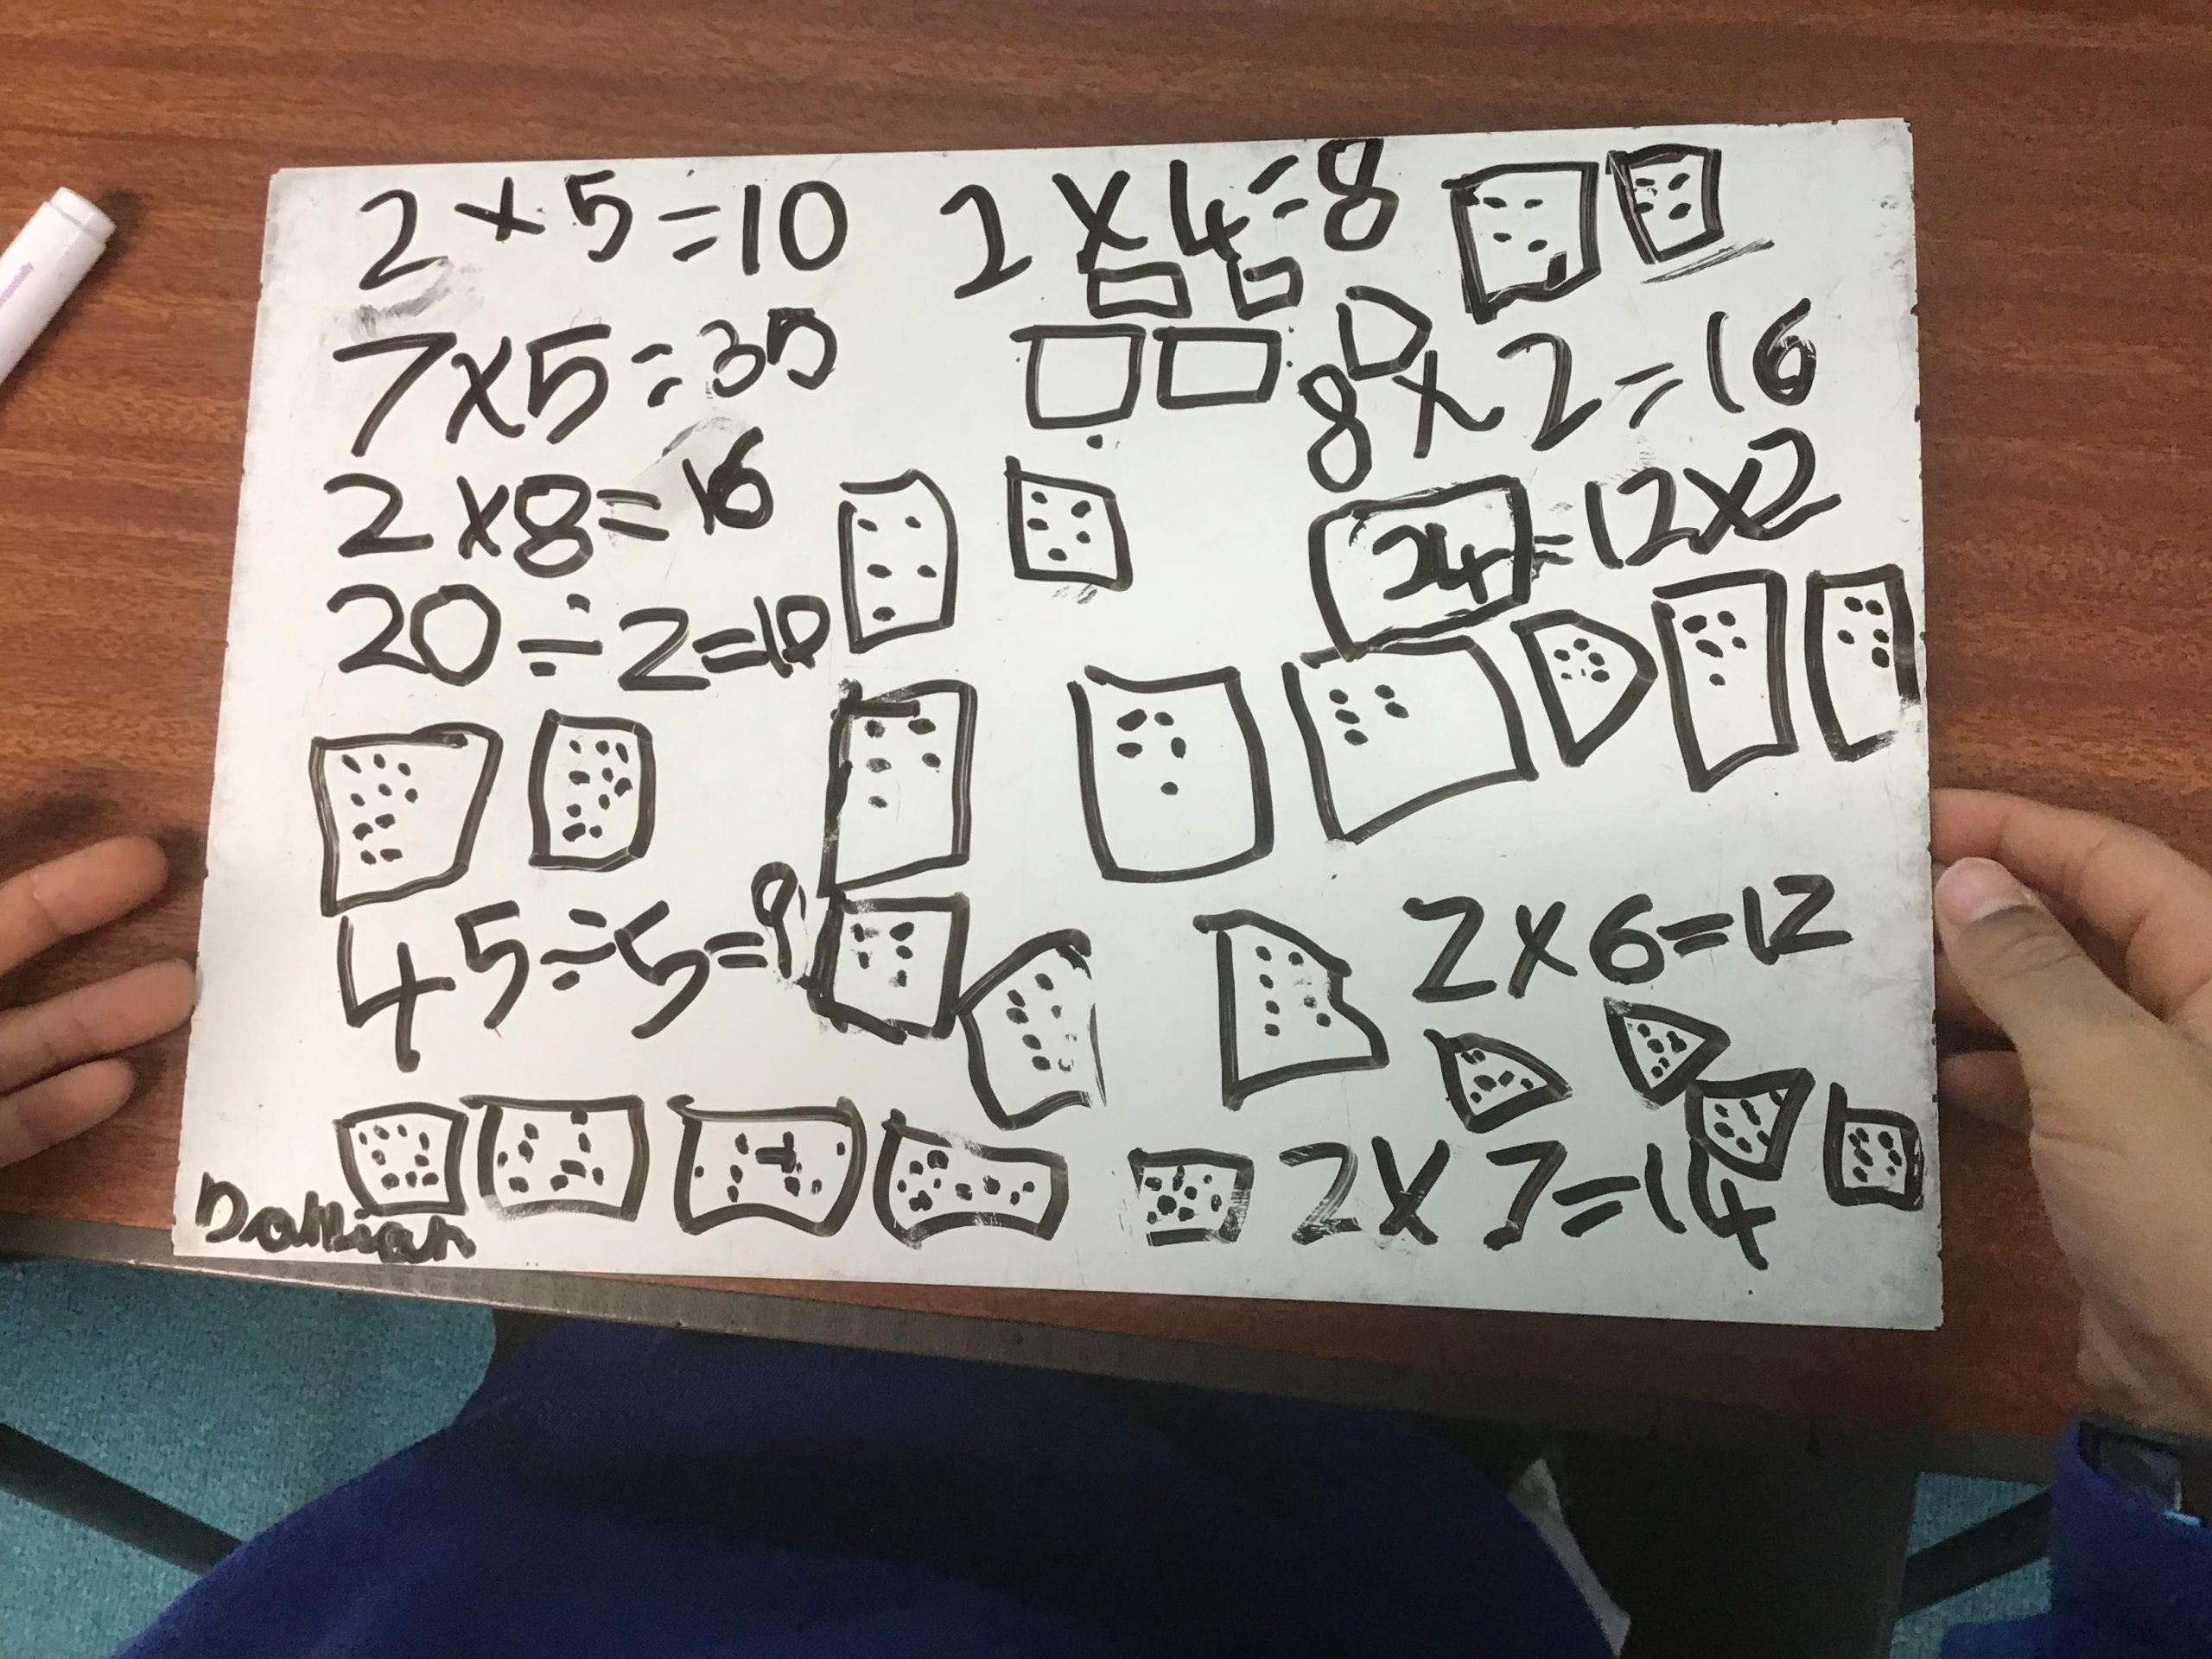 2 × 5 = 10
2 × 4 = 8
7 × 5 = 35
8 × 2 = 16
2 × 8 = 16
24 = 12 × 2
20 ÷ 2 = 10
45 ÷ 5 = 9
2 × 6 = 12
2 × 7 = 14